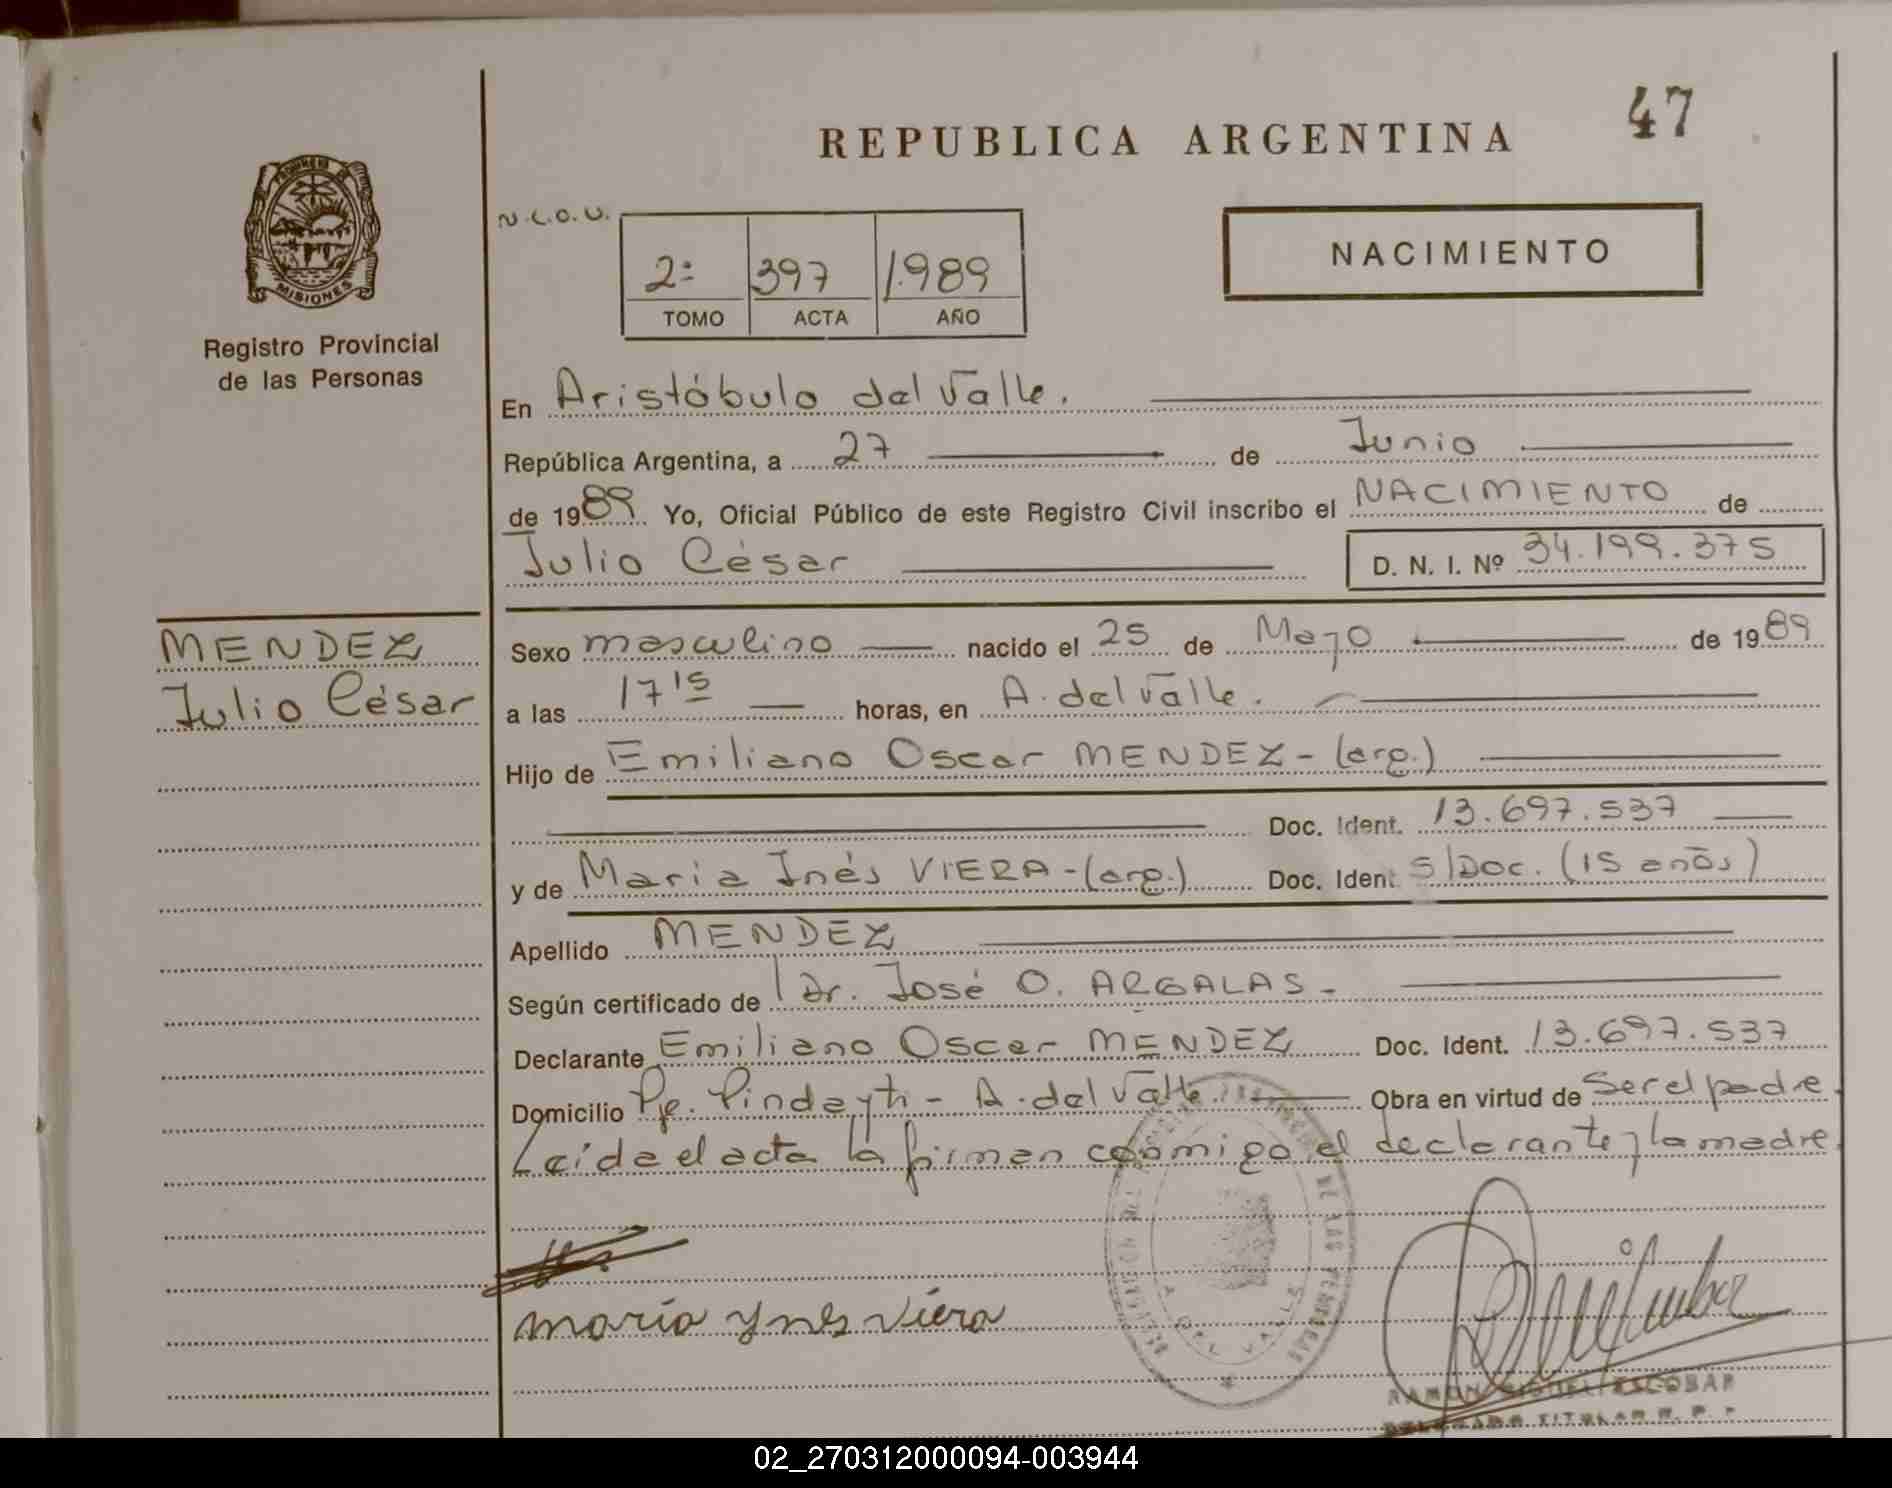 47
REPUBLICA ARGENTINA
PROVINCIA DE
MISIONES
Registro Provincial
de las Personas
N.C.O.U.
2º 397 1.989
TOMO ACTA AÑO
NACIMIENTO
En Aristóbulo del Valle.
República Argentina, a 27 de Junio
de 1989 Yo, Oficial Público de este Registro Civil inscribo el NACIMIENTO de
Julio César D. N. I. Nº 34.199.375
MENDEZ
Julio César
Sexo masculino nacido el 25 de Mayo de 1989
a las 17 15 horas, en A. del Valle.
Hijo de Emiliano Oscar MENDEZ - (arg.)
Doc. Ident. 13.697.537
y de Maria Inés VIERA - (arg.) Doc. Ident. S/Doc. (15 años)
Apellido MENDEZ
Según certificado de Dr. José O. ARGALAS -
Declarante Emiliano Oscar MENDEZ Doc. Ident. 13.697.537
Domicilio Pje. Pindayti - A. del Valle Obra en virtud de Ser el padre.
Leída el acta la firman conmigo el declarante y la madre.
maría ynes viera
A. DEL VALLE
RAMON MIGUEL ESCOBAR
DELEGADO TITULAR R. P. P.
02_270312000094-003944